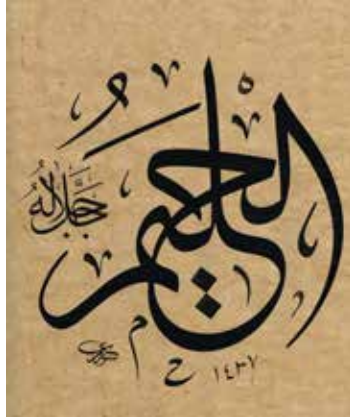 الحليم
جَلَّ جَلَالُهُ
١٤٣٧